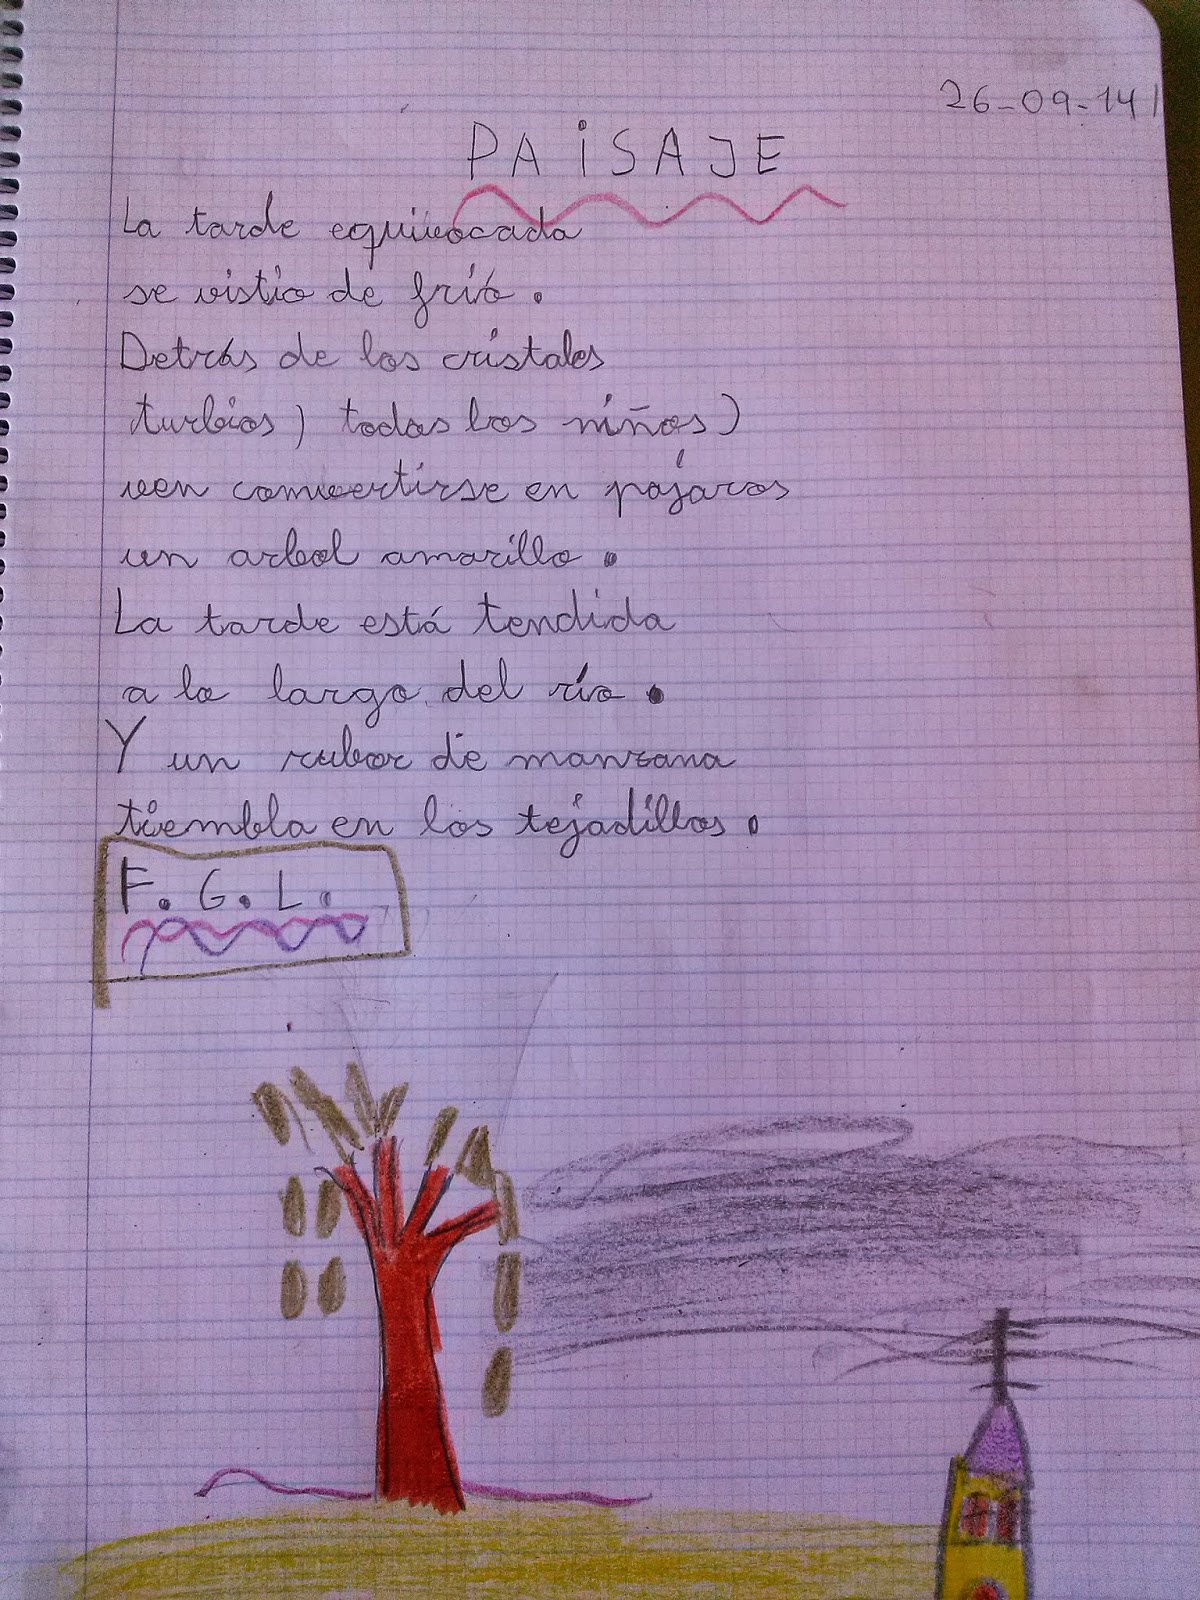 26-09-14
PAiSAJE
La tarde equivocada
se vistio de frío.
Detrás de los cristales
turbios, todos los niños,
ven convertirse en pájaros
un arbol amarillo.
La tarde está tendida
a lo largo del río.
Y un rubor de manzana
tiembla en los tejadillos.
F. G. L.